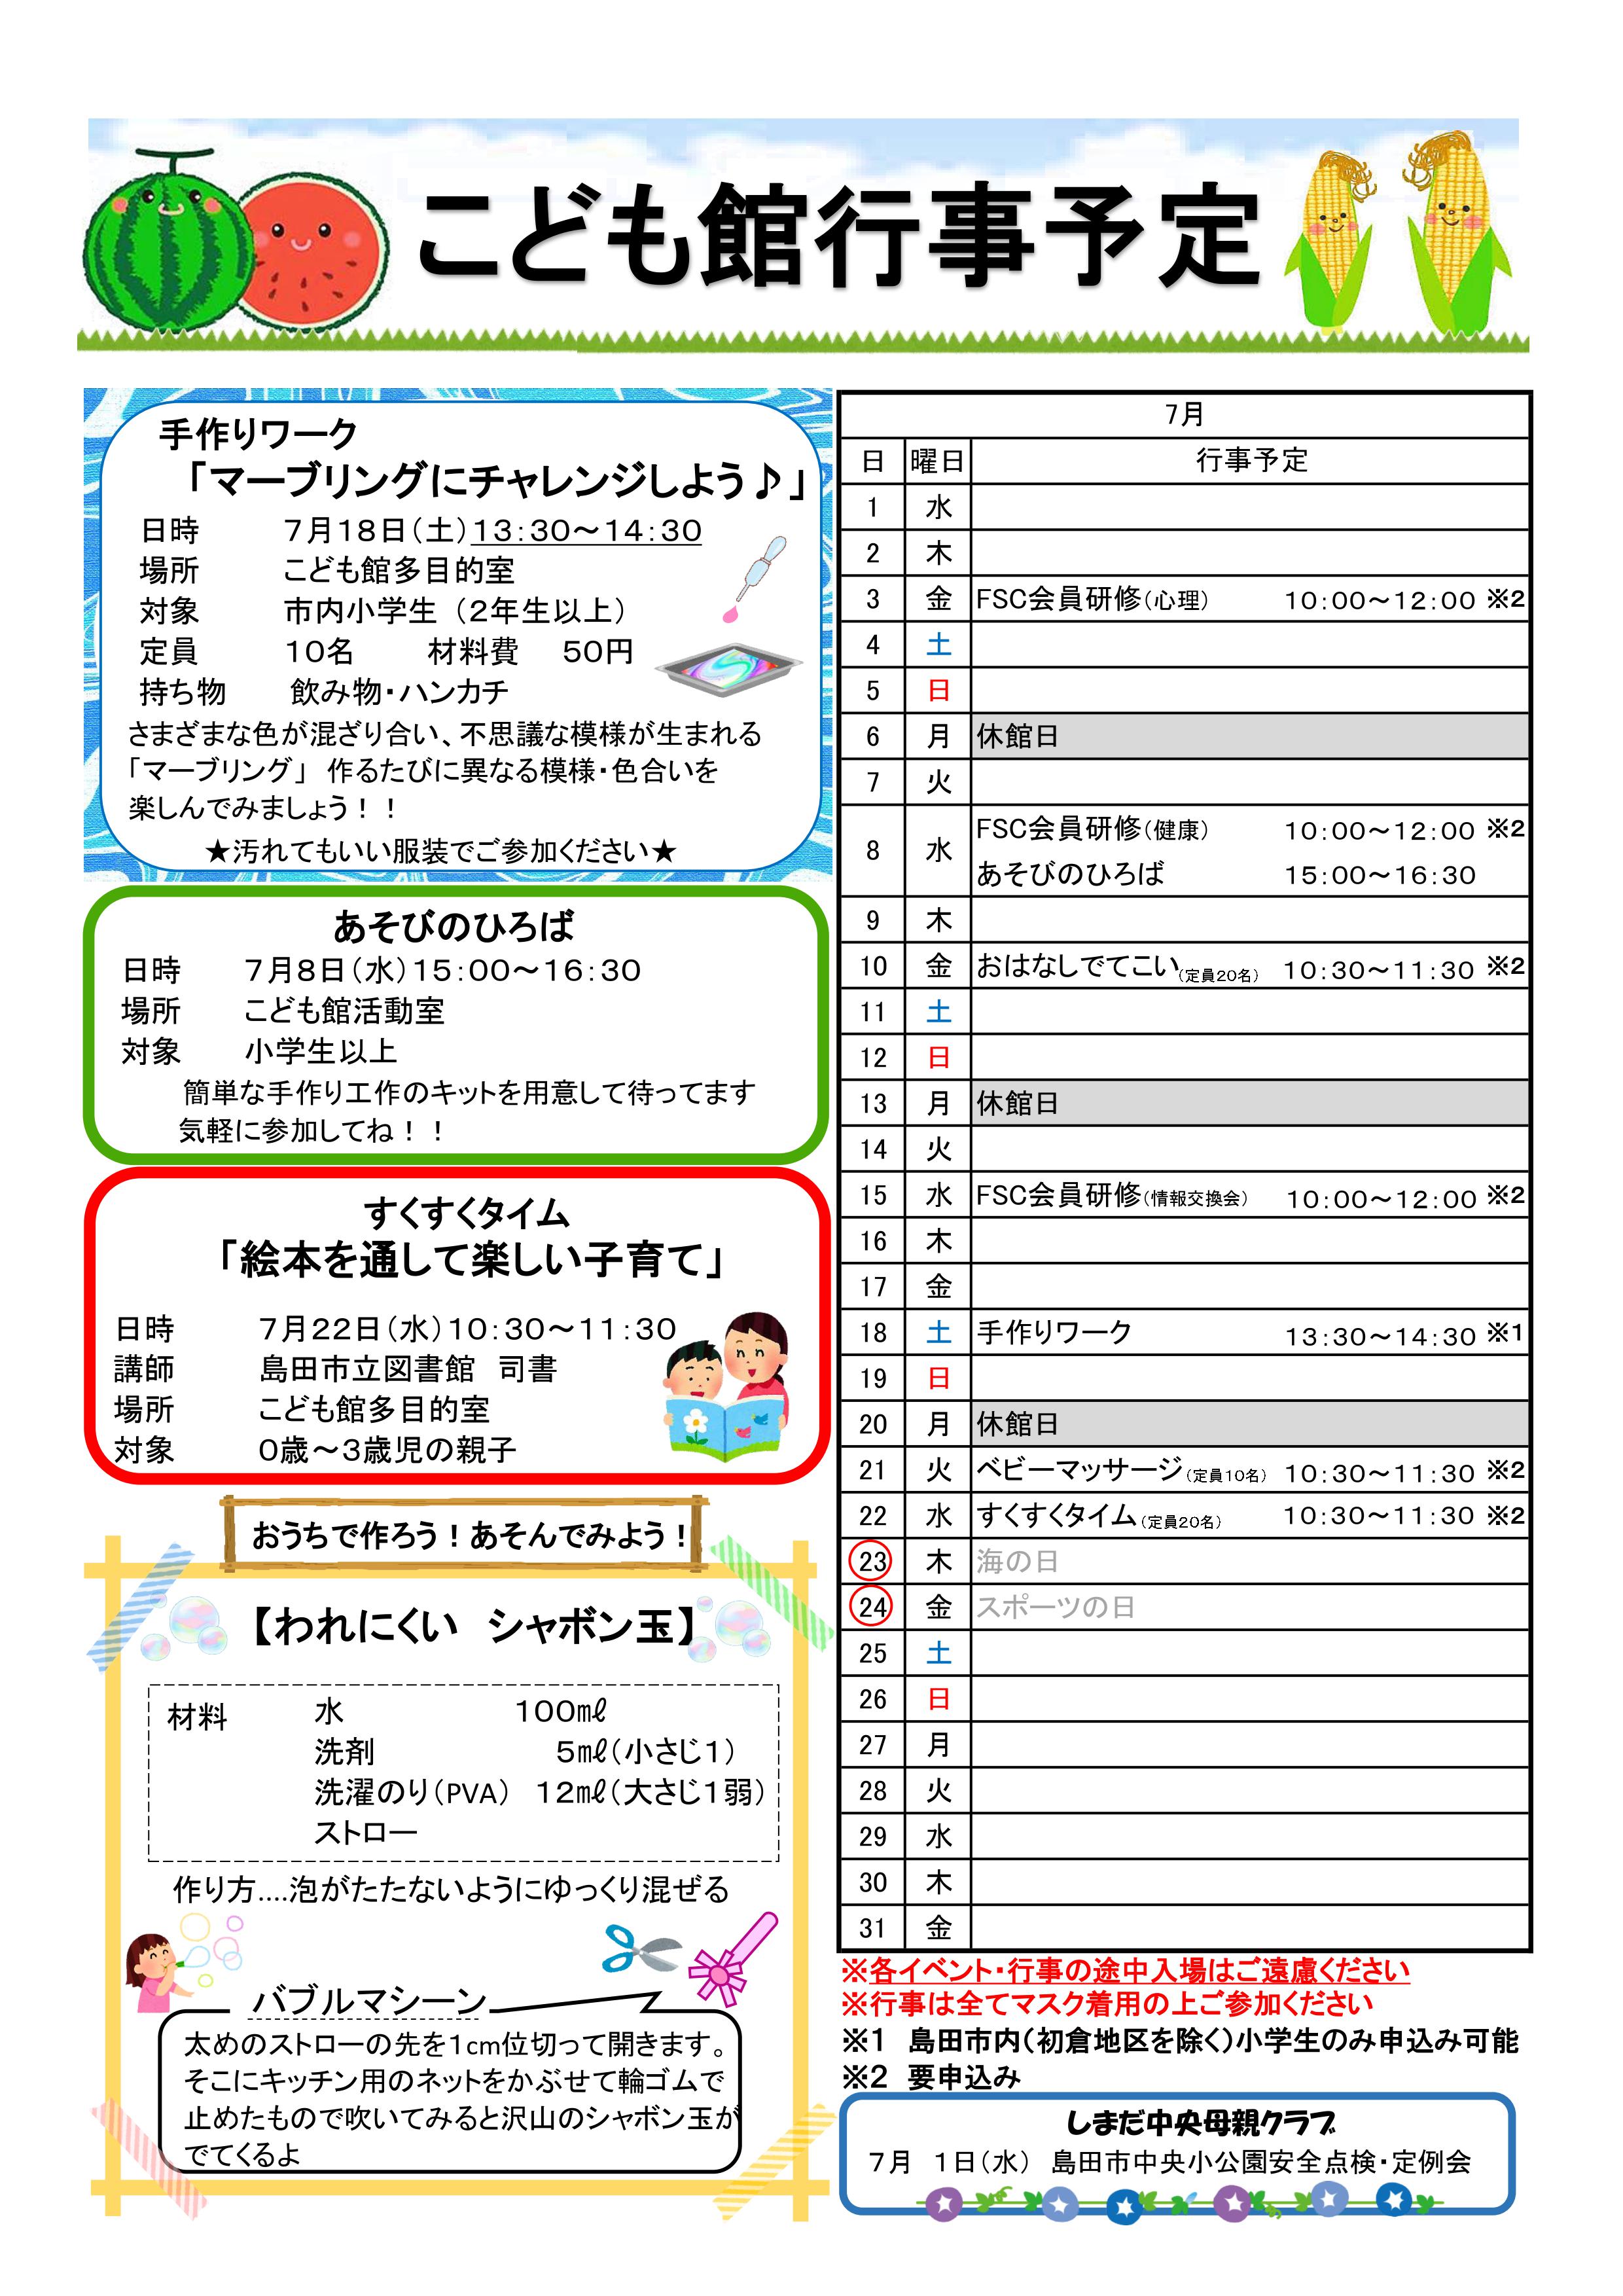 こども館行事予定
手作りワーク
「マーブリングにチャレンジしよう♪」
日時 7月18日(土)13:30～14:30
場所 こども館多目的室
対象 市内小学生（2年生以上）
定員 10名 材料費 50円
持ち物 飲み物・ハンカチ
さまざまな色が混ざり合い、不思議な模様が生まれる
「マーブリング」 作るたびに異なる模様・色合いを
楽しんでみましょう！！
★汚れてもいい服装でご参加ください★
あそびのひろば
日時 7月8日(水)15:00～16:30
場所 こども館活動室
対象 小学生以上
簡単な手作り工作のキットを用意して待ってます
気軽に参加してね！！
すくすくタイム
「絵本を通して楽しい子育て」
日時 7月22日(水)10:30～11:30
講師 島田市立図書館 司書
場所 こども館多目的室
対象 0歳～3歳児の親子
おうちで作ろう！あそんでみよう！
【われにくい シャボン玉】
材料 水 100㎖
洗剤 5㎖(小さじ1)
洗濯のり(PVA) 12㎖(大さじ1弱)
ストロー
作り方....泡がたたないようにゆっくり混ぜる
バブルマシーン
太めのストローの先を1cm位切って開きます。
そこにキッチン用のネットをかぶせて輪ゴムで
止めたもので吹いてみると沢山のシャボン玉が
でてくるよ
7月
日 曜日 行事予定
1 水
2 木
3 金 FSC会員研修(心理) 10:00～12:00 ※2
4 土
5 日
6 月 休館日
7 火
8 水 FSC会員研修(健康) 10:00～12:00 ※2
あそびのひろば 15:00～16:30
9 木
10 金 おはなしでてこい(定員20名) 10:30～11:30 ※2
11 土
12 日
13 月 休館日
14 火
15 水 FSC会員研修(情報交換会) 10:00～12:00 ※2
16 木
17 金
18 土 手作りワーク 13:30～14:30 ※1
19 日
20 月 休館日
21 火 ベビーマッサージ(定員10名) 10:30～11:30 ※2
22 水 すくすくタイム(定員20名) 10:30～11:30 ※2
23 木 海の日
24 金 スポーツの日
25 土
26 日
27 月
28 火
29 水
30 木
31 金
※各イベント・行事の途中入場はご遠慮ください
※行事は全てマスク着用の上ご参加ください
※1 島田市内(初倉地区を除く)小学生のみ申込み可能
※2 要申込み
しまだ中央母親クラブ
7月 1日(水) 島田市中央小公園安全点検・定例会